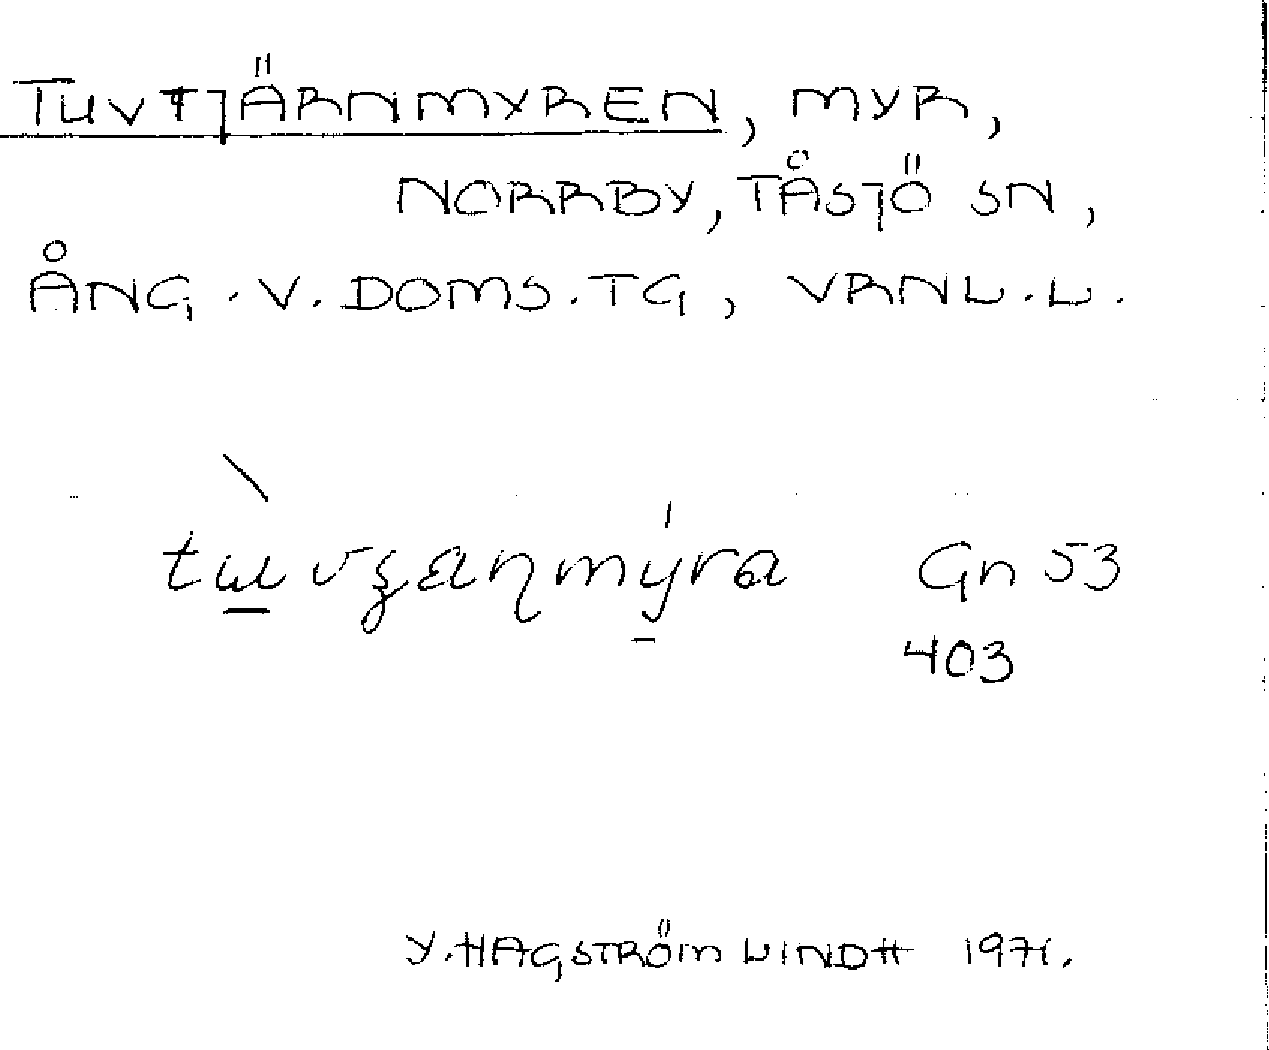 TUVTJÄRNMYREN, MYR,
NORRBY, TÅSJÖ SN,
ÅNG. V. DOMS. TG, VRNL. L.
Gn 53
403
Y. HAGSTRÖM LINDH 1971.